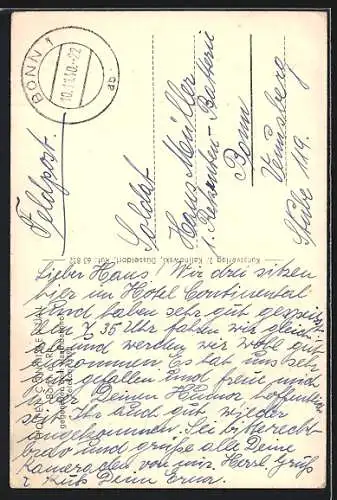 BONN 1
10.11.40.-22
ab
Feldpost.
Soldat
Hans Müller
1. Rekruten-Batterie
Bonn
Venusberg
Stube 119.
Kunstverlag Z. Kalinowski, Düsseldorf, Ruf:
Lieber Hans! Wir drei sitzen
hier im Hotel Continental
und haben sehr gut gespeist
35 Uhr fahren wir gleich
ab und werden wir wohl gut
ankommen, es hat uns sehr
gut gefallen und freue mich
über Deinen Humor, hoffentlich
seit Ihr auch gut wieder
angekommen. Sei bitte recht
brav und grüße alle Deine
Kameraden von mir. Herzl. Gruß
u. Kuß Deine Erna.